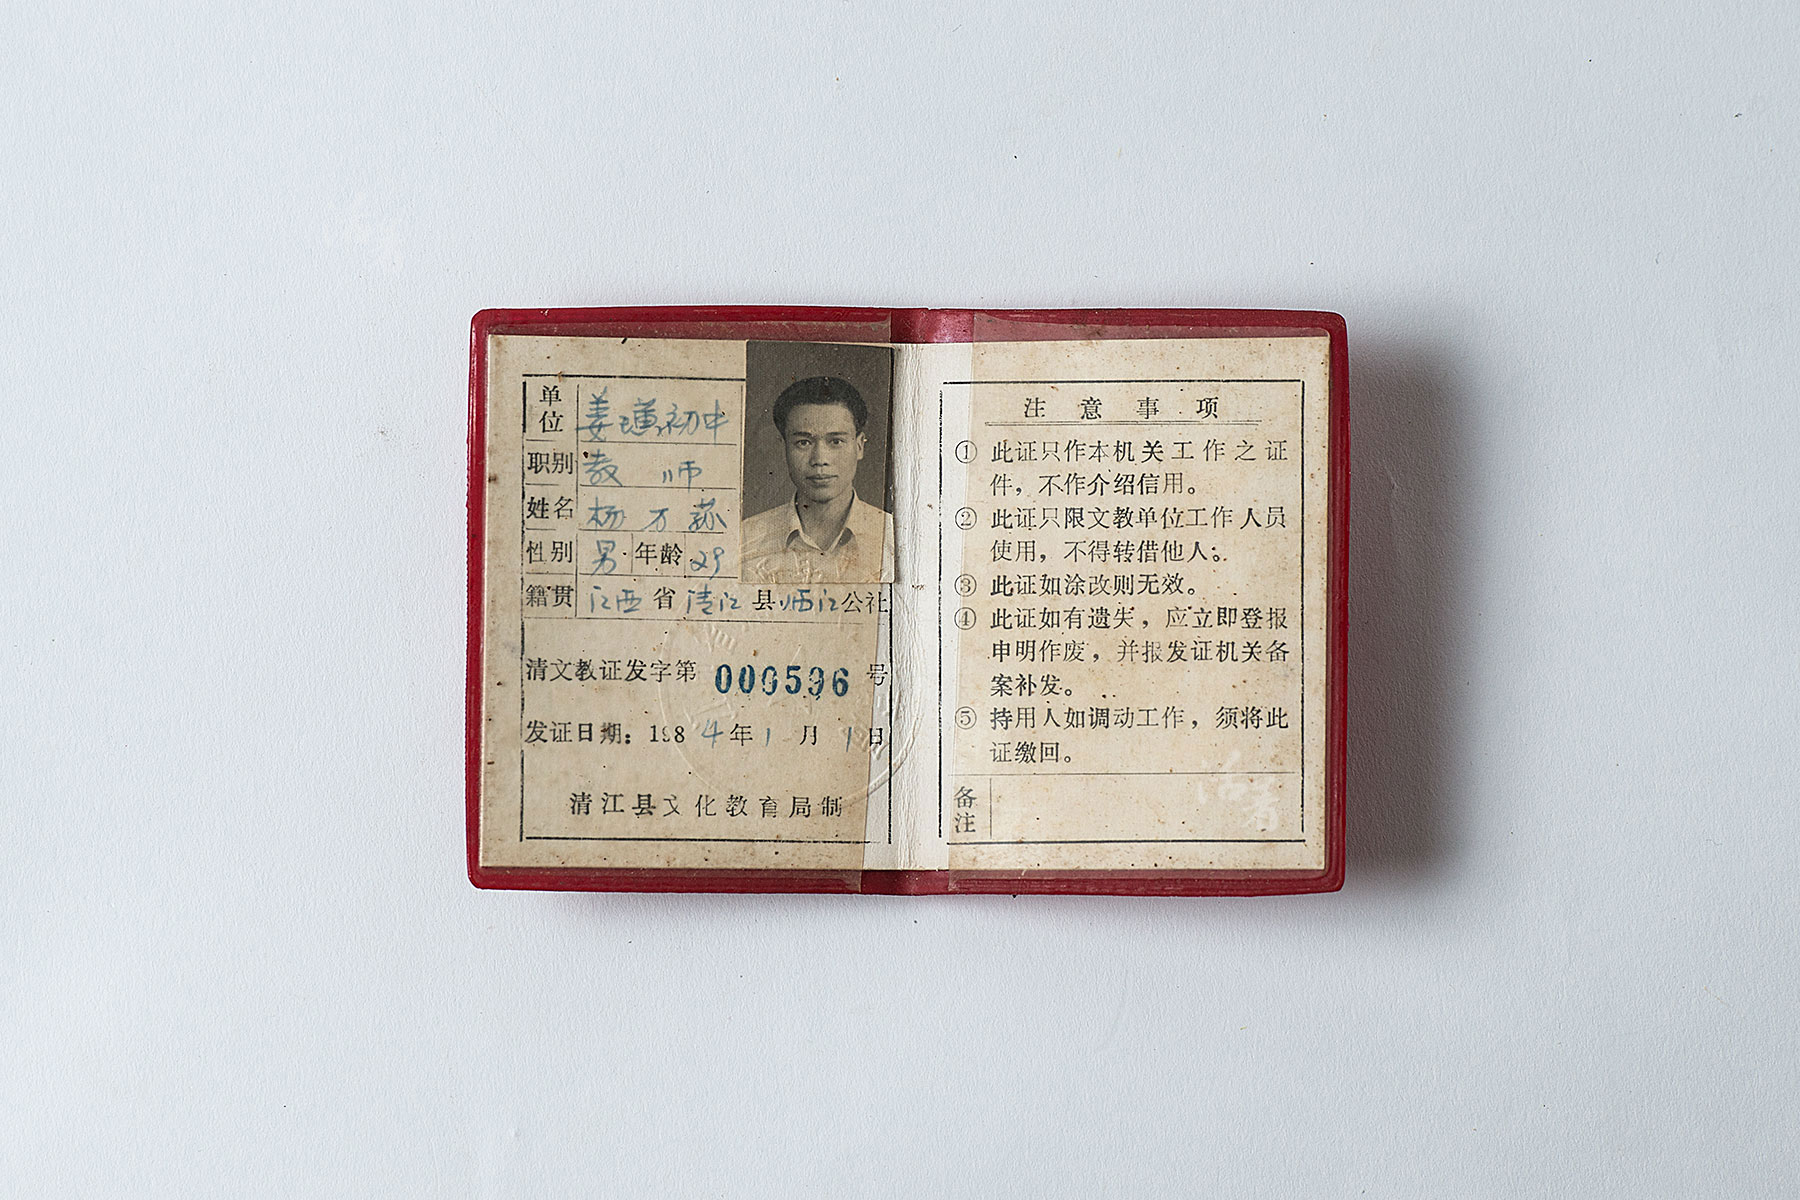 单位 姜璜初中
职别 教师
姓名 杨万荪
性别 男 年龄 29
籍贯 江西省清江县师江公社
清文教证发字第 000596 号
发证日期：1984年1月1日
清江县文化教育局制
注意事项
① 此证只作本机关工作之证
件，不作介绍信用。
② 此证只限文教单位工作人员
使用，不得转借他人。
③ 此证如涂改则无效。
④ 此证如有遗失，应立即登报
申明作废，并报发证机关备
案补发。
⑤ 持用人如调动工作，须将此
证缴回。
备注